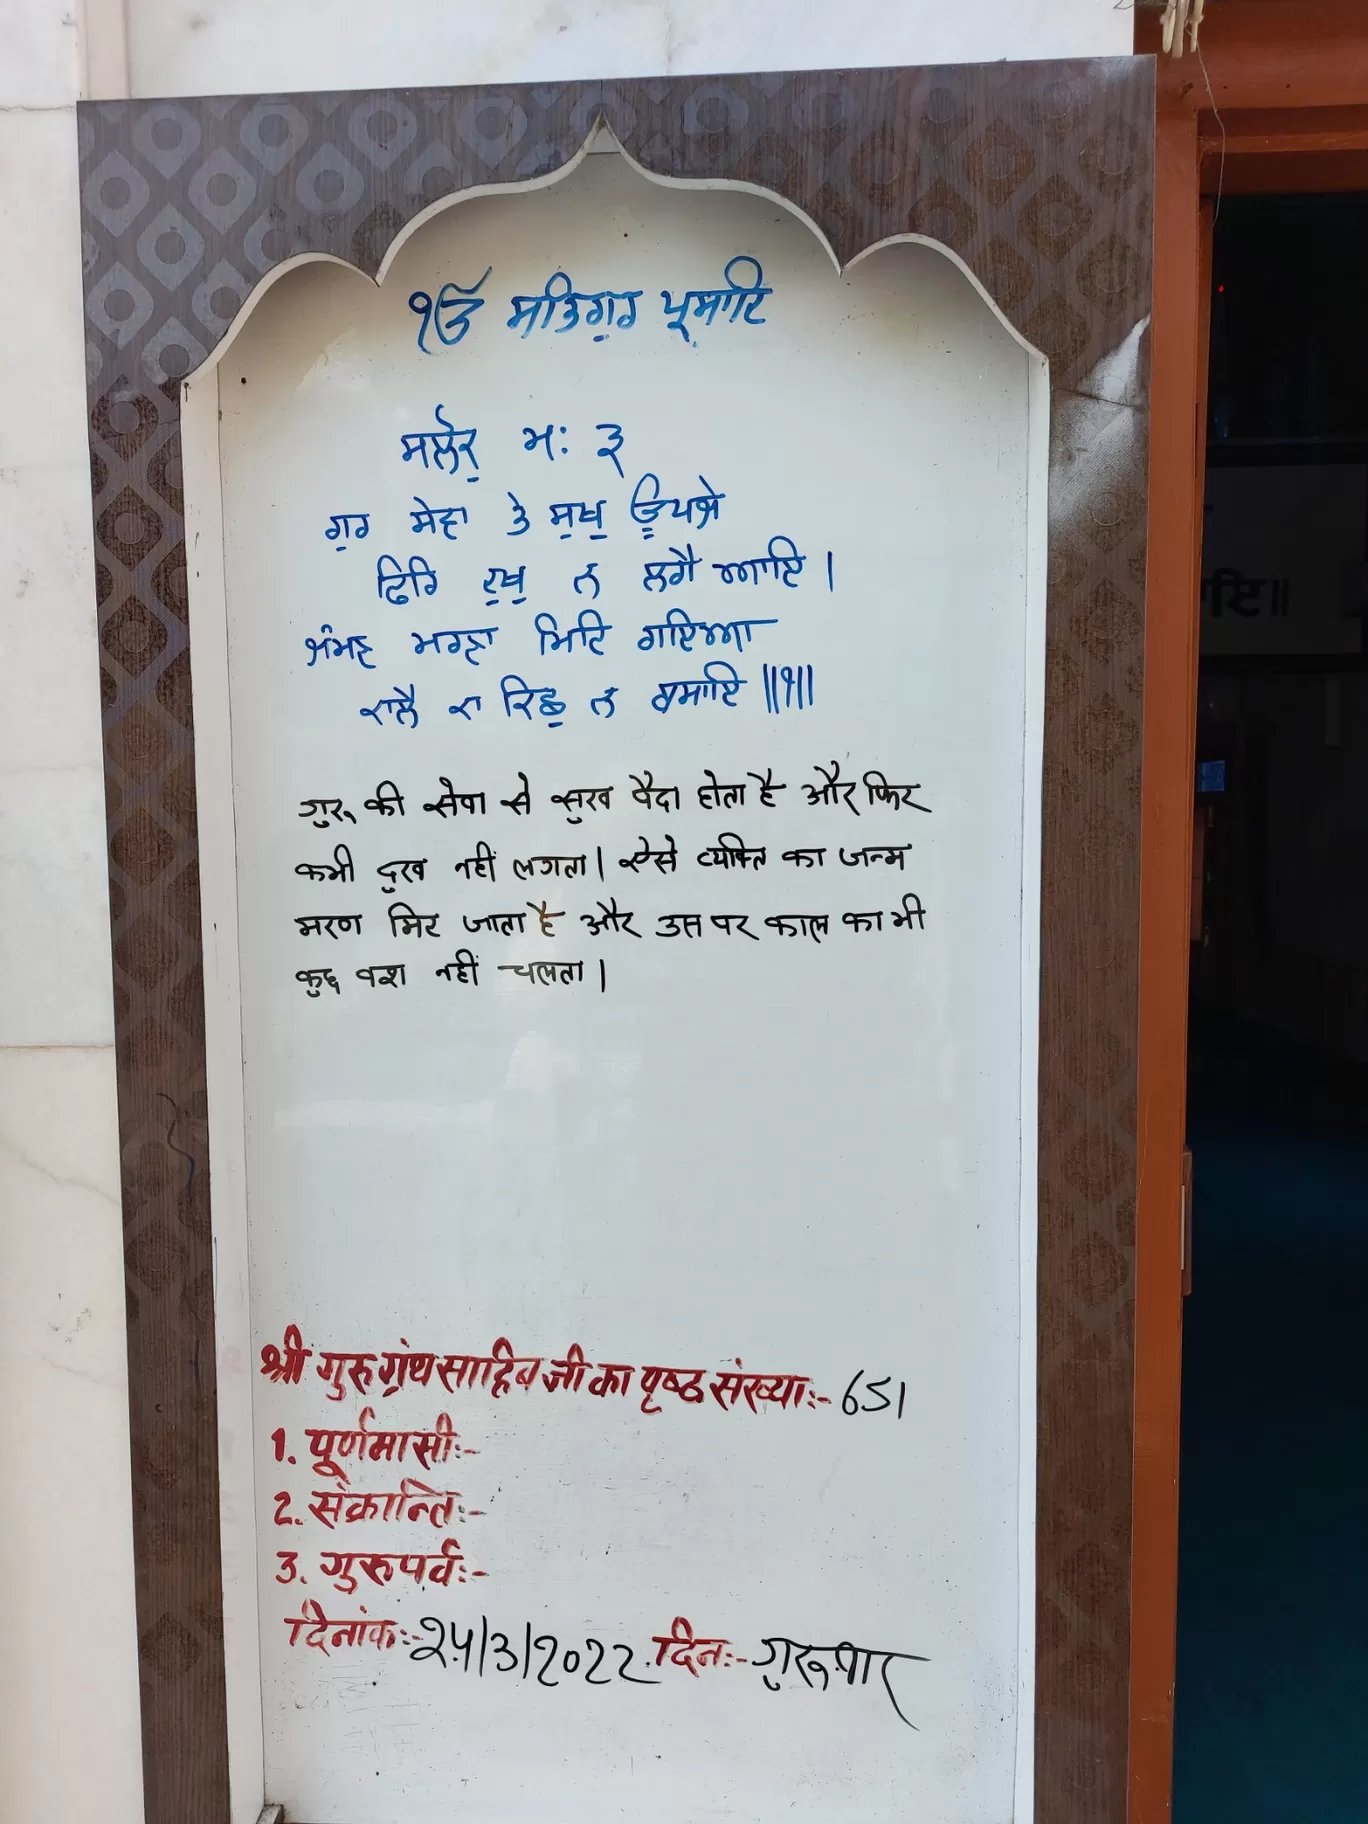 ੴ ਸਤਿਗੁਰ ਪ੍ਰਸਾਦਿ
ਸਲੋਕੁ ਮ: ੩
ਗੁਰ ਸੇਵਾ ਤੇ ਸੁਖੁ ਊਪਜੇ
ਫਿਰਿ ਦੁਖੁ ਨ ਲਗੈ ਆਇ ।
ਜੰਮਣ ਮਰਣਾ ਮਿਟਿ ਗਇਆ
ਕਾਲੈ ਕਾ ਕਿਛੁ ਨ ਬਸਾਇ ॥੧॥
गुरू की सेवा से सुख पैदा होता है और फिर
कभी दुख नहीं लगता। ऐसे व्यक्ति का जन्म
मरण मिट जाता है और उस पर काल का भी
कुछ वश नहीं चलता।
श्री गुरु ग्रंथ साहिब जी का पृष्ठ संख्याः- 651
1. पूर्णमासीः-
2. संक्रान्तिः-
3. गुरुपर्वः-
दिनांकः- २५/3/2022. दिनः- गुरूवार
ਇ॥